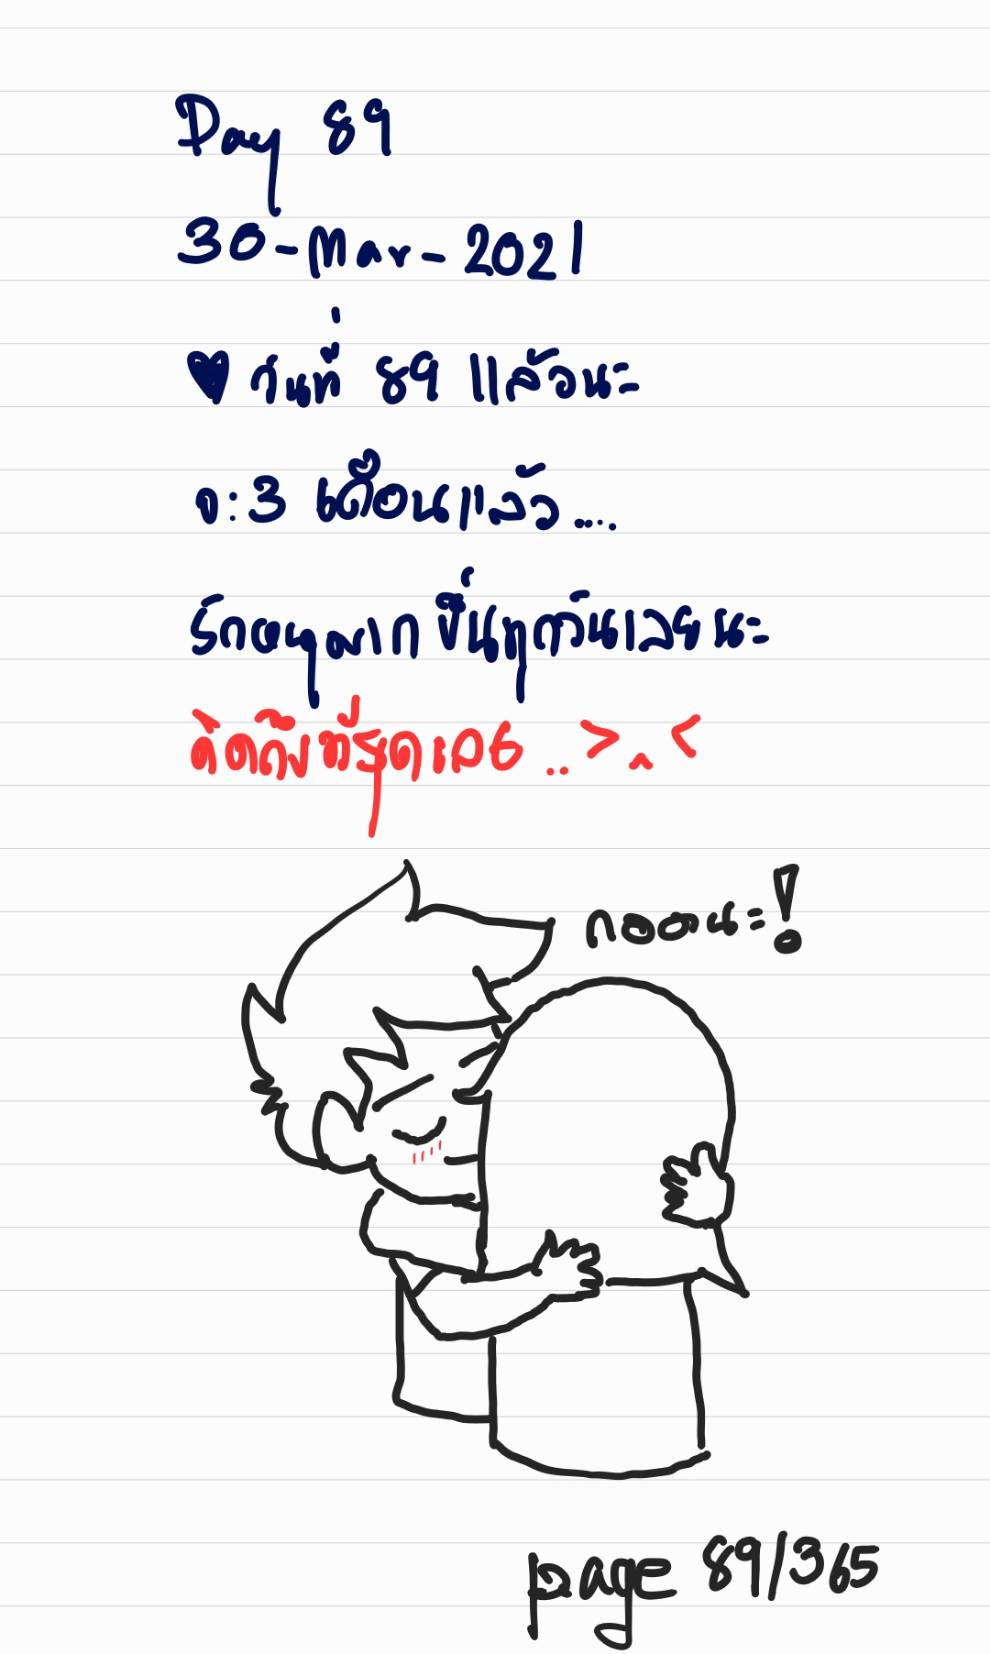 Day 89
30-Mar-2021
♥ วันที่ 89 แล้วนะ
จะ 3 เดือนแล้ว....
รักหนูมากขึ้นทุกวันเลยนะ
คิดถึงที่สุดเลย..>.<
กอดนะ!
page 89/365